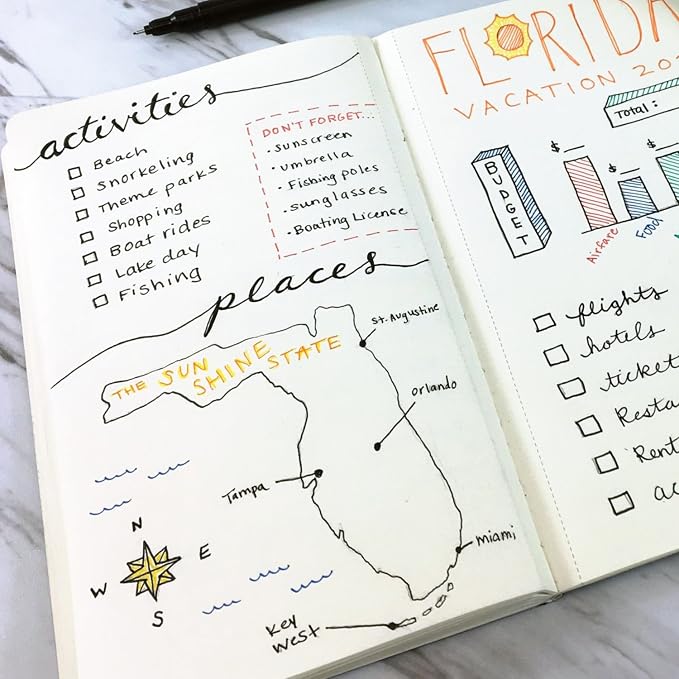 activities
Beach
Snorkeling
Theme parks
Shopping
Boat rides
Lake day
Fishing
DON'T FORGET...
• Sunscreen
• Umbrella
• Fishing poles
• Sunglasses
• Boating License
places
THE SUN
SHINE STATE
St. Augustine
Orlando
Tampa
Miami
Key
West
N
W
E
S
FLORIDA
VACATION
Total:
BUDGET
$
$
$
Airfare
Food
flights
hotels